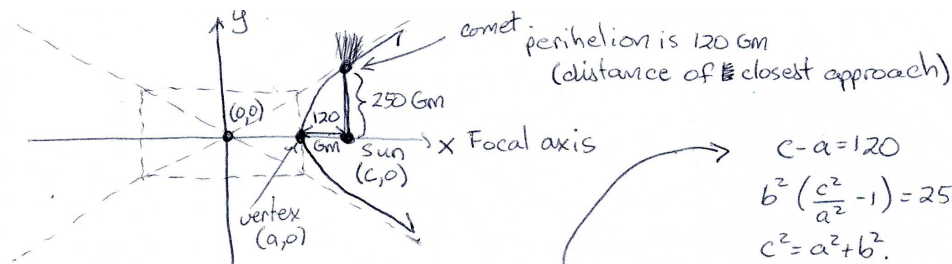 y
comet
perihelion is 120 Gm
(distance of closest approach)
(0,0)
120
Gm
250 Gm
Sun
(c,0)
x Focal axis
vertex
(a,0)
c-a=120
b² (c²/a² -1) = 25
c²=a²+b².